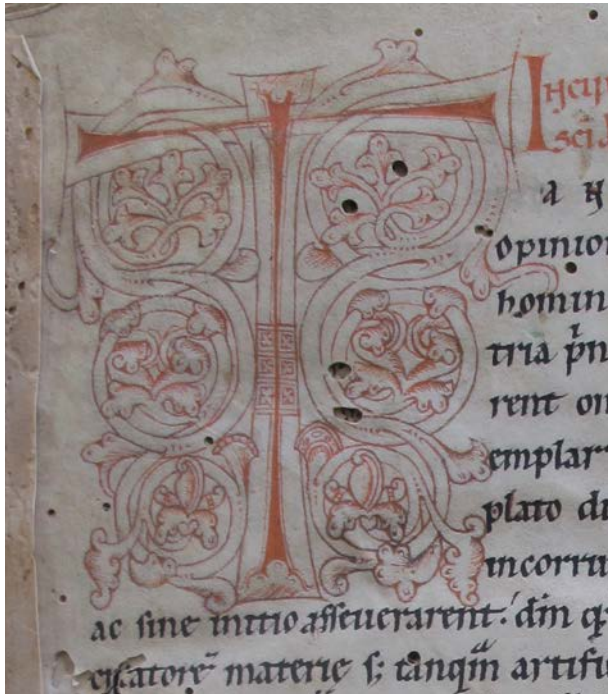 Incip
sci a
T A N
opinion
homin
tria p̄n
rent on
emplar
plato di
incorru
ac sine initio asseuerarent. dm̄ q
materie s; tanqm̄ artifi